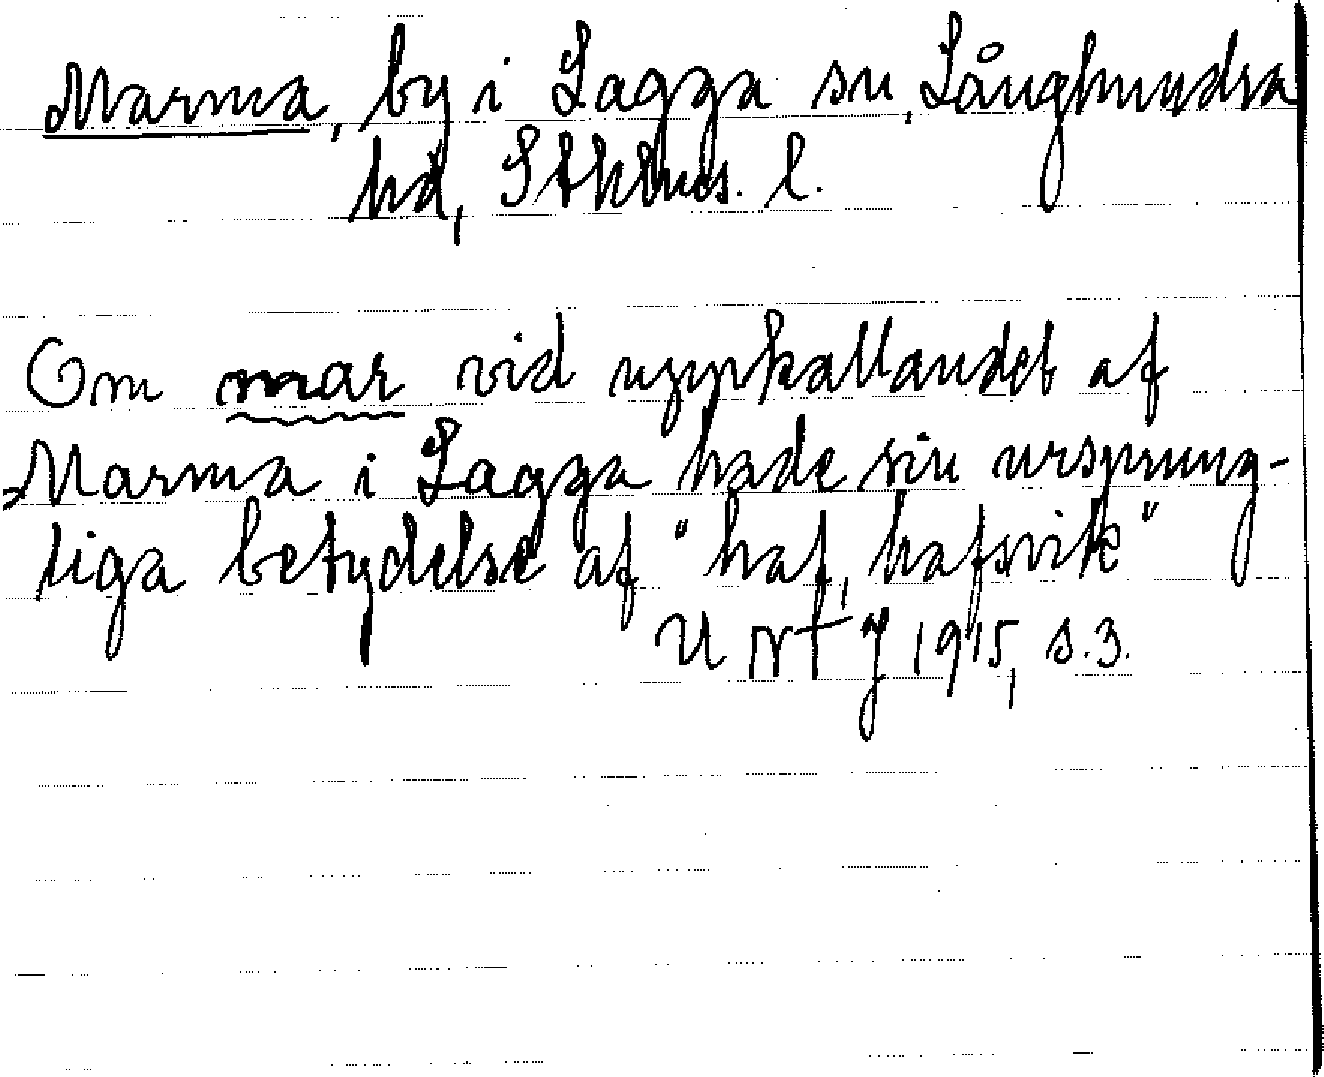 Marma, by i Lagga sn, Långhundra
hd, Sthlms. l.
Om mar vid uppkallandet af
Marma i Lagga hade sin ursprung-
liga betydelse af "haf, hafsvik"
U Nt J 1915, s. 3.